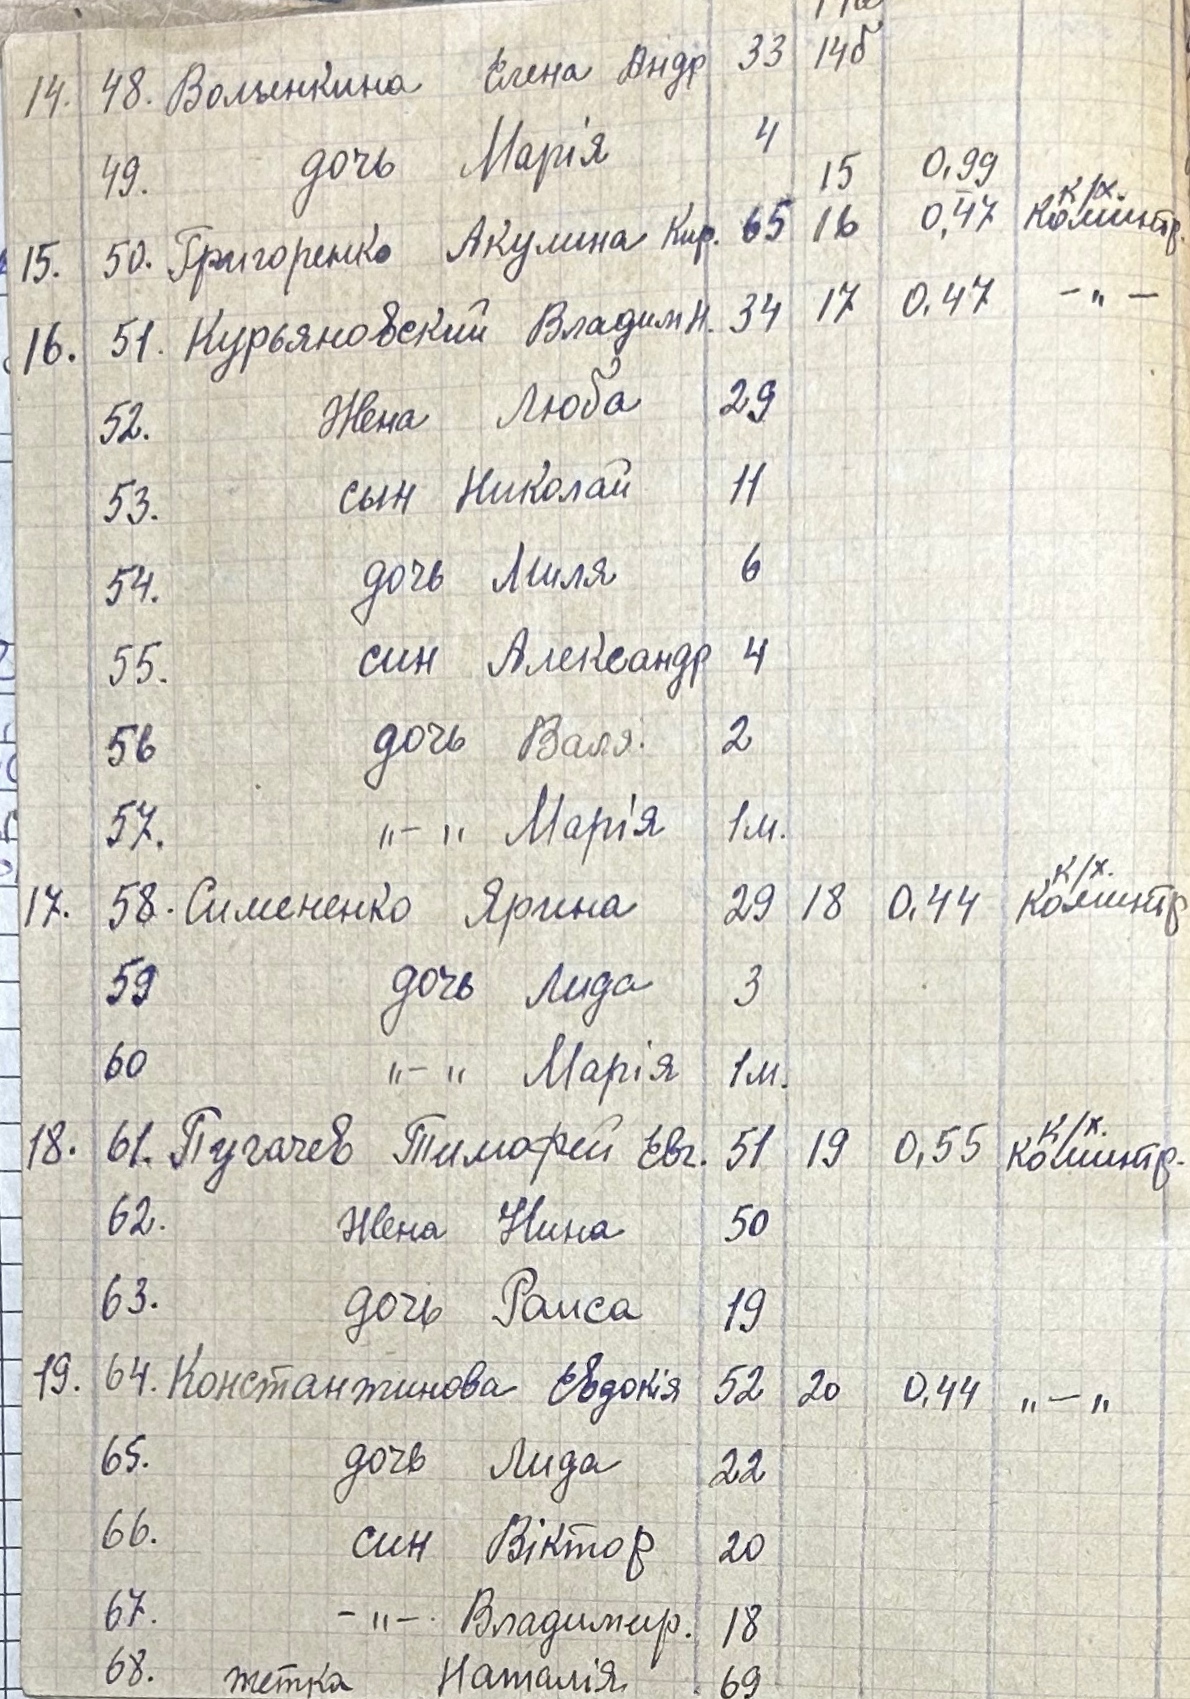 14. 48. Волынкина Елена Андр 33 14б
49. дочь Марія 4 15 0,99
15. 50. Григоренко Акулина Кир. 65 16 0,47 к/х. Коминтр.
16. 51. Курьяновский Владим Н. 34 17 0,47 -„-
52. Жена Люба 29
53. сын Николай 11
54. дочь Миля 6
55. син Александр 4
56 дочь Валя. 2
57. „-„ Марія 1м.
17. 58. Симененко Ярина 29 18 0,44 к/х. Коминтр
59 дочь Лида 3
60 „-„ Марія 1м.
18. 61. Пугачев Тимофей Евг. 51 19 0,55 к/х. Коминтр.
62. Жена Нина 50
63. дочь Раиса 19
19. 64. Константинова Евдокія 52 20 0,44 „-„
65. дочь Лида 22
66. син Віктор 20
67. -„-. Владимир. 18
68. тетка Наталія 69